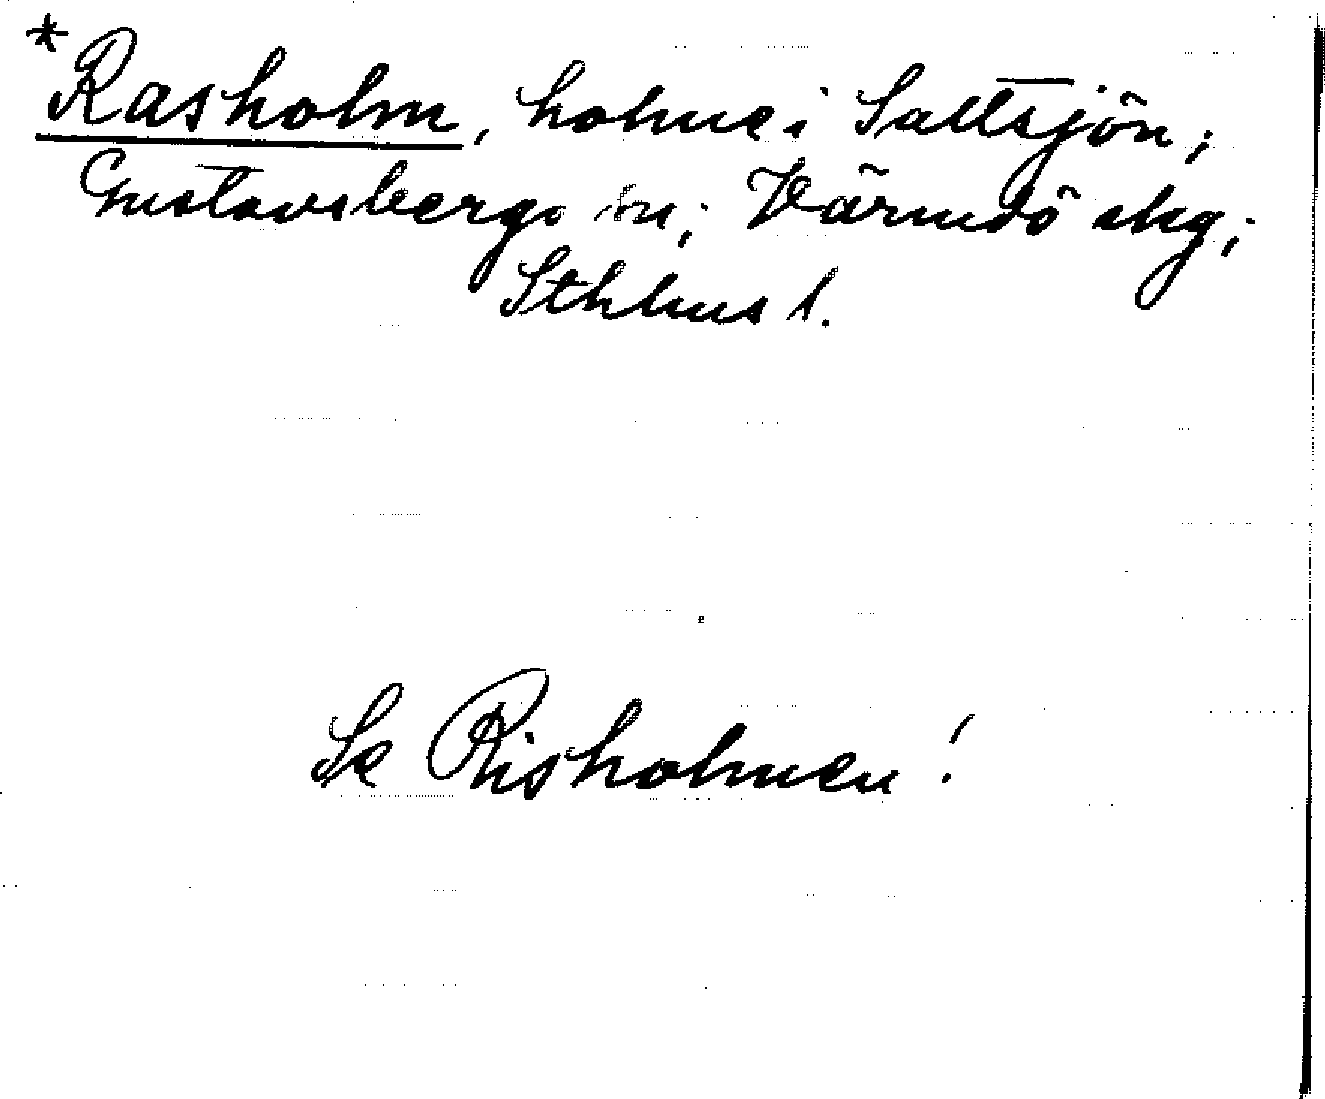 *Rasholm, holme i Saltsjön;
Gustavsbergs sn; Värmdö skg;
Sthlms l.
Se Risholmen!